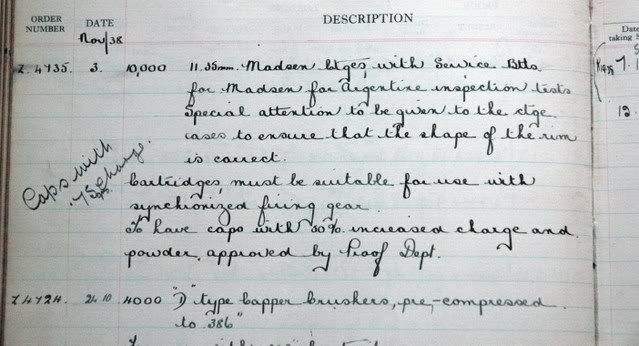 ORDER NUMBER DATE DESCRIPTION Date
taking S
Nov/38
Z.4735. 3. 10,000 11.35mm. Madsen ctges, with Service Btts. 7.1
for Madsen for Argentine inspection tests
Special attention to be given to the ctge 12.
cases to ensure that the shape of the rim
is correct.
Caps with
charge.
Cartridges, must be suitable for use with
synchronized firing gear.
To have caps with 50% increased charge and
powder, approved by Proof Dept.
Z4724. 24.10 4000 "D" type capper brushers, pre-compressed
to .386"